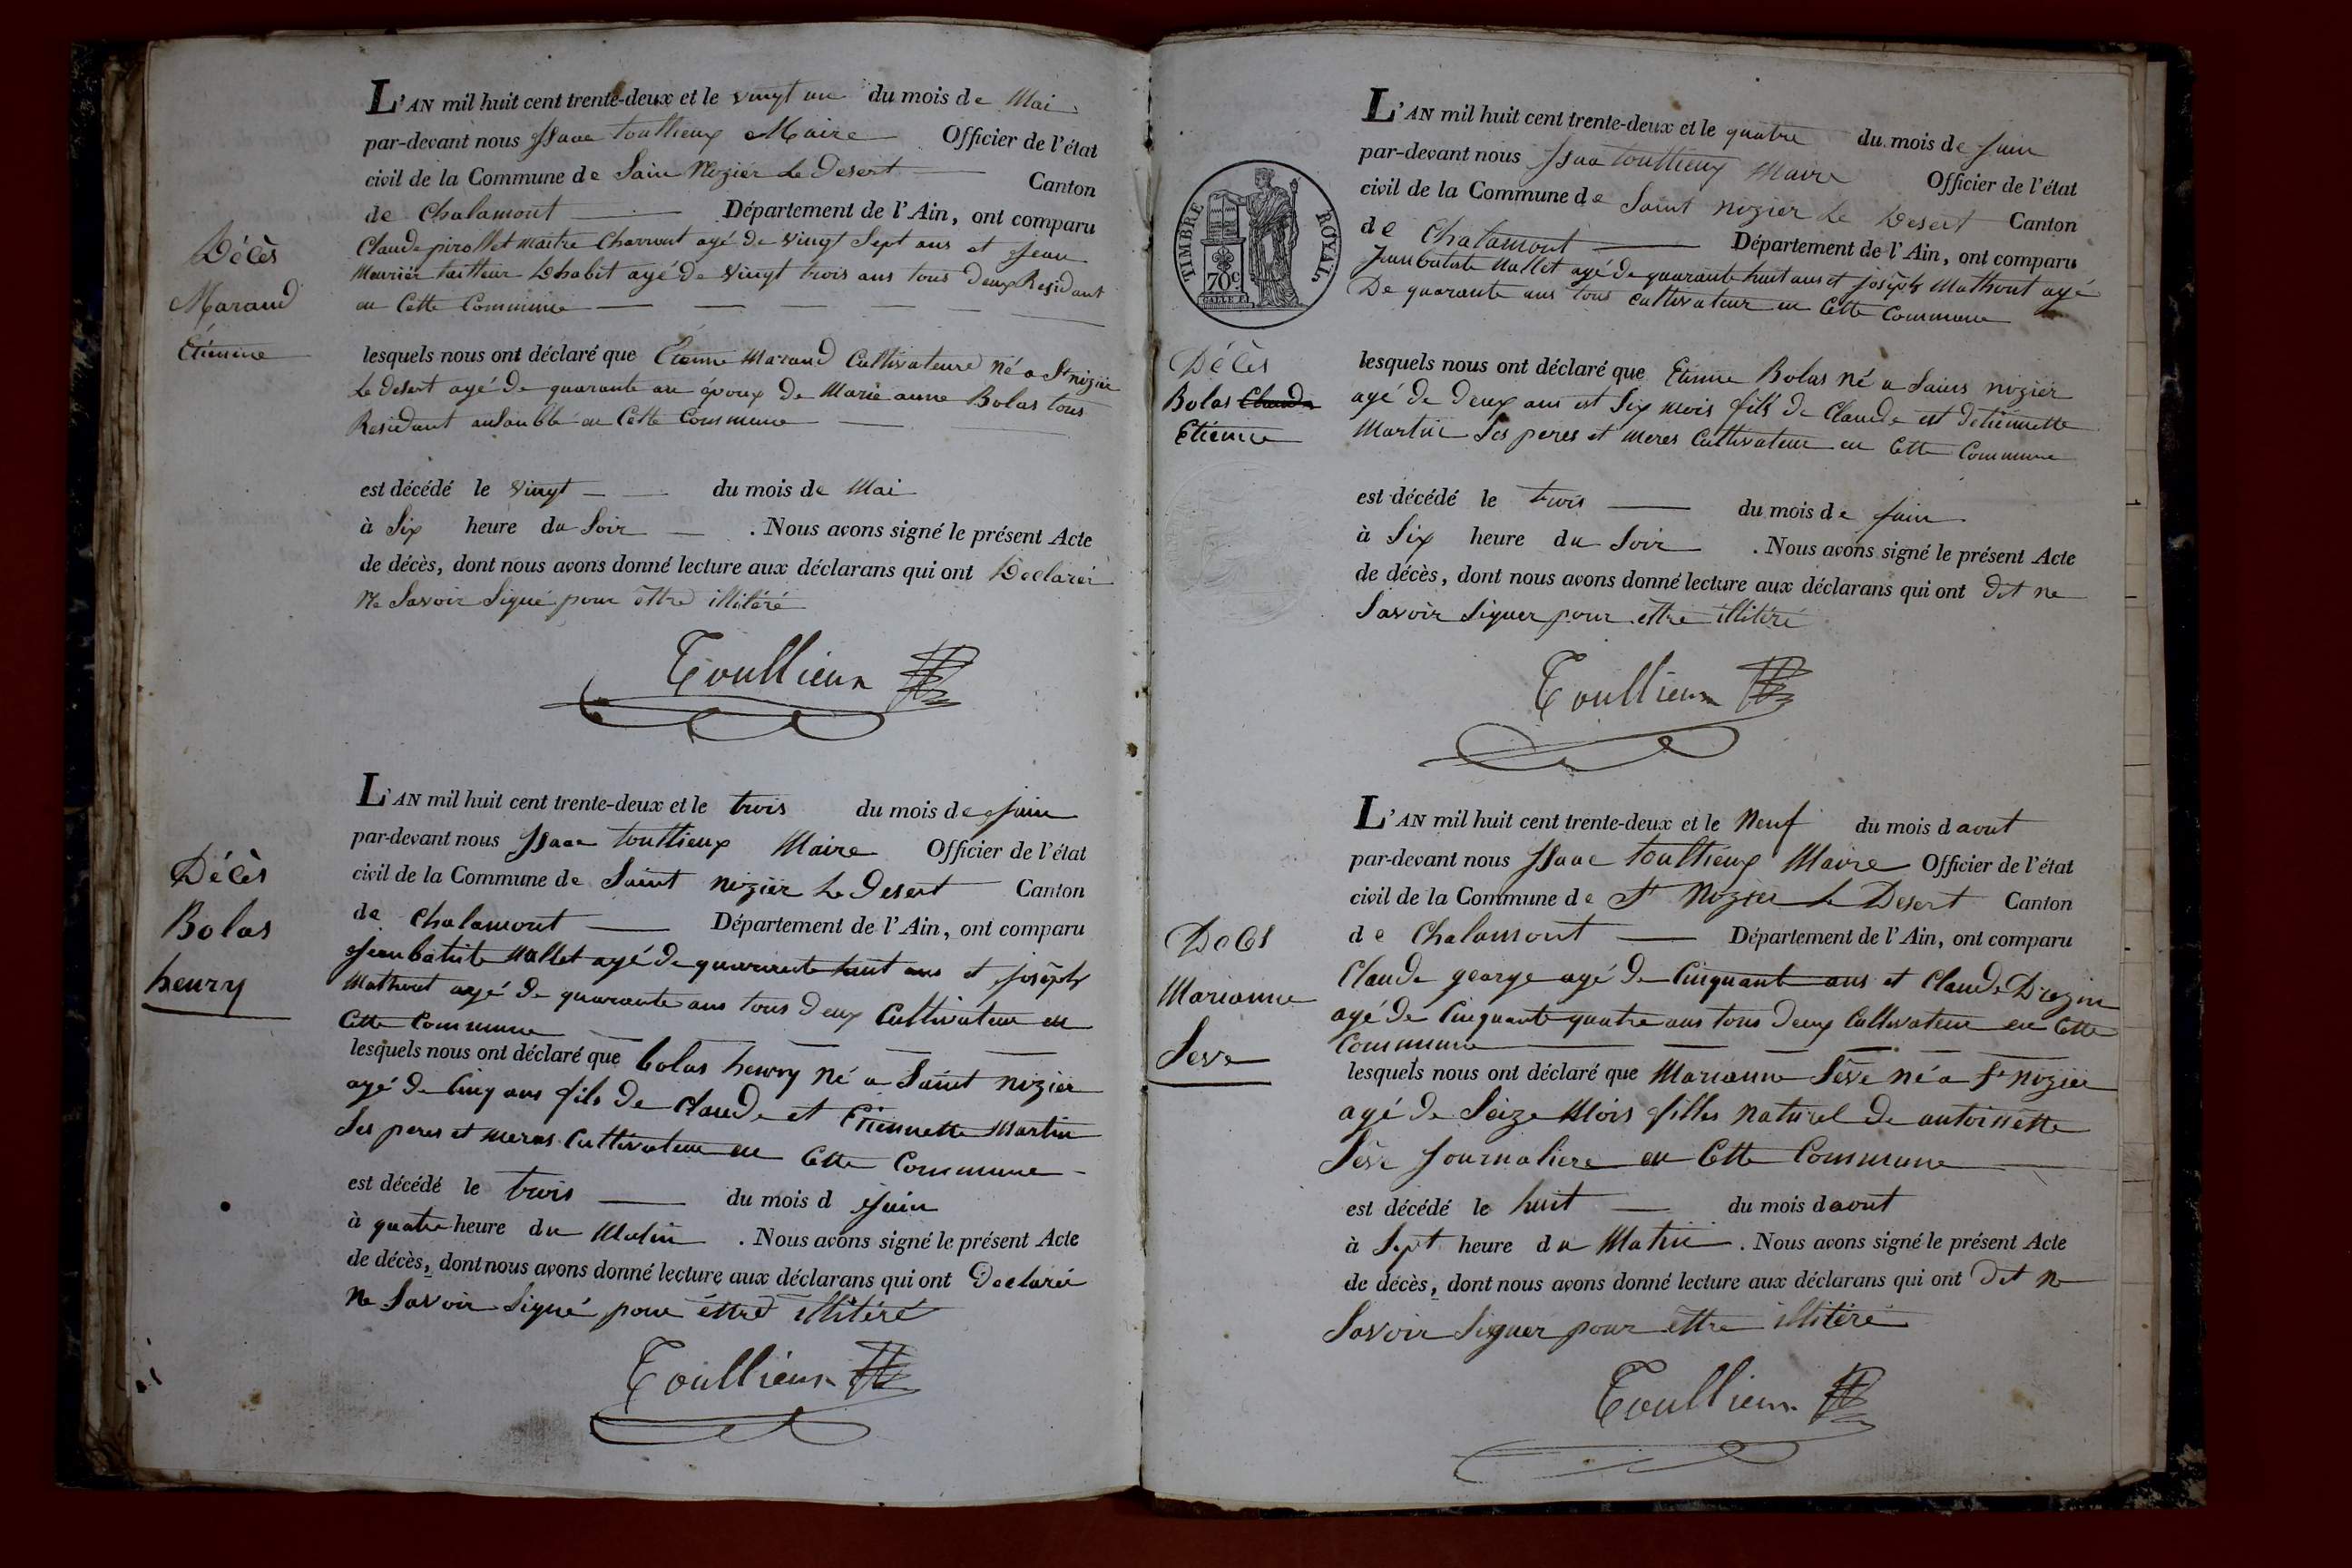 L'AN mil huit cent trente-deux et le vingt un du mois de Mai
par-devant nous Isaac toullieux Maire Officier de l'état
civil de la Commune de Sain Nizier Le Desert Canton
de Chalamont Département de l'Ain, ont comparu
Claude pirollet maitre Charront agé de vingt Sept ans et Jean
Meurier tailleur Dhabit agé de vingt trois ans tous deux Residant
en Cette Commune
Décès
Marand
Etienne
lesquels nous ont déclaré que Etienne Marand Cultivateure né a St nizier
Le desert agé de quarante an époux de Marie anne Bolas tous
Residant ansamble en Cette Commune
est décédé le vingt du mois de Mai
à Six heure du Soir . Nous avons signé le présent Acte
de décès, dont nous avons donné lecture aux déclarans qui ont Declarer
Ne Savoir Signé pour ettre illitéré
Toullieux
L'AN mil huit cent trente-deux et le trois du mois de Juin
par-devant nous Isaac toullieux Maire Officier de l'état
civil de la Commune de Saint nizier Le Desert Canton
de Chalamont Département de l'Ain, ont comparu
Jean batiste Mallet agé de quarante huit ans et joseph
Mathout agé de quarante ans tous deux Cultivateur en
Cette Commune
Décès
Bolas
henry
lesquels nous ont déclaré que bolas henry né a Saint nizier
agé de Cinq ans fils de Claude et Etiennette Martin
Ses peres et meres Cultivateur en Cette Commune
est décédé le trois du mois d Juin
à quatre heure du Matin . Nous avons signé le présent Acte
de décès, dont nous avons donné lecture aux déclarans qui ont Declarer
Ne Savoir Signé pour éttre illitéré
Toullieux
TIMBRE ROYAL
70c
L'AN mil huit cent trente-deux et le quatre du mois de Juin
par-devant nous Isaac toullieux Maire Officier de l'état
civil de la Commune de Saint nizier Le Desert Canton
de Chalamont Département de l'Ain, ont comparu
Jean batiste Mallet agé de quarante huit ans et joseph Mathout agé
De quarante ans tous cultivateur en Cette Commune
Décès
Bolas Claude
Etienne
lesquels nous ont déclaré que Etienne Bolas né a Sains nizier
agé de deux ans est Six mois fils de Claude est detiennette
Martin Ses peres et meres Cultivateur en Cette Commune
est décédé le trois du mois de Juin
à Six heure du Soir . Nous avons signé le présent Acte
de décès, dont nous avons donné lecture aux déclarans qui ont dit ne
Savoir Signer pour ettre illitéré
Toullieux
L'AN mil huit cent trente-deux et le Neuf du mois d aout
par-devant nous Isaac toullieux Maire Officier de l'état
civil de la Commune de St Nizier Le Desert Canton
de Chalamont Département de l'Ain, ont comparu
Claude george agé de Cinquant ans et Claude Drogin
agé de Cinquante quatre ans tous deux Cultivateur en Cette
Commune
Marianne
Seve
lesquels nous ont déclaré que Marianne Séve né a St nizier
agé de Seize Mois filles naturel de antoinette
Séve Journaliere en Cette Commune
est décédé le huit du mois d aout
à Sept heure du Matin . Nous avons signé le présent Acte
de décès, dont nous avons donné lecture aux déclarans qui ont dit ne
Savoir Signer pour ettre illitéré
Toullieux